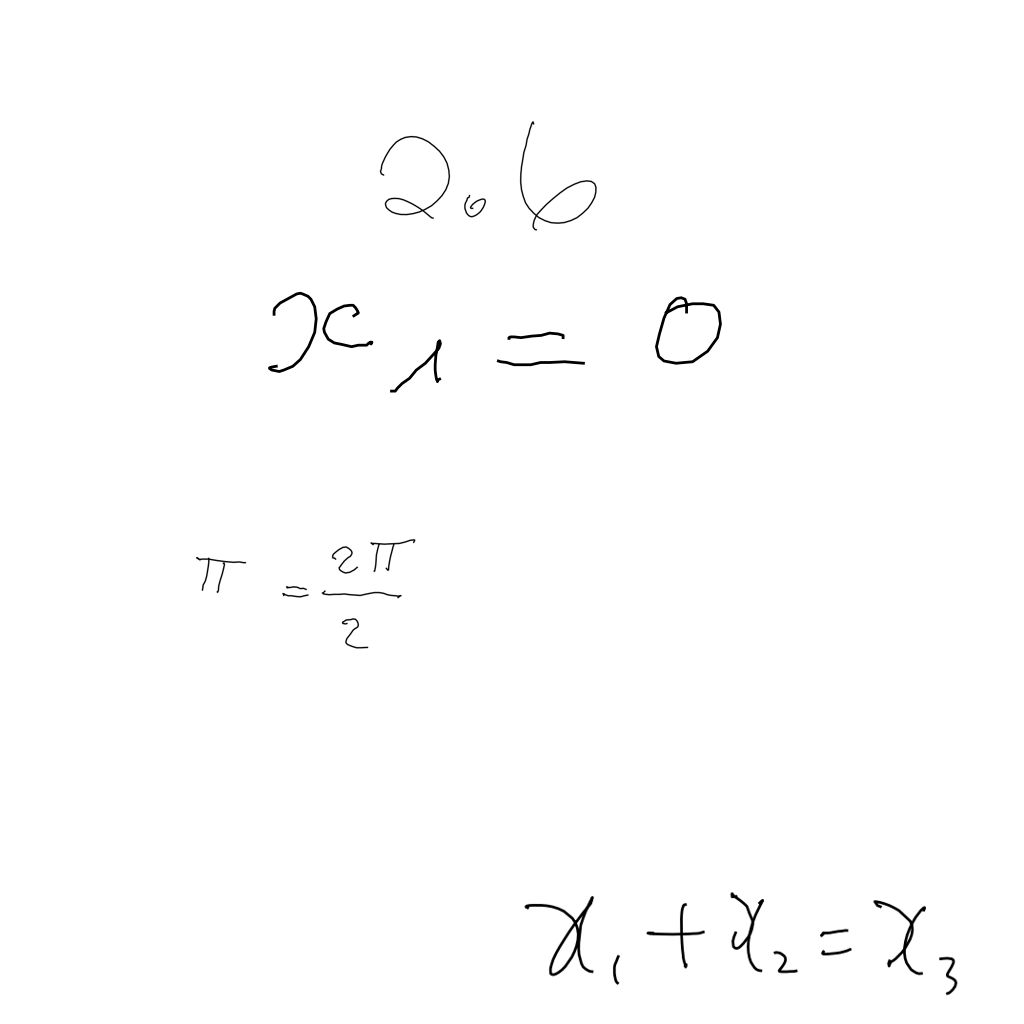 2.6
x₁ = 0
π = 2π/2
x₁ + x₂ = x₃